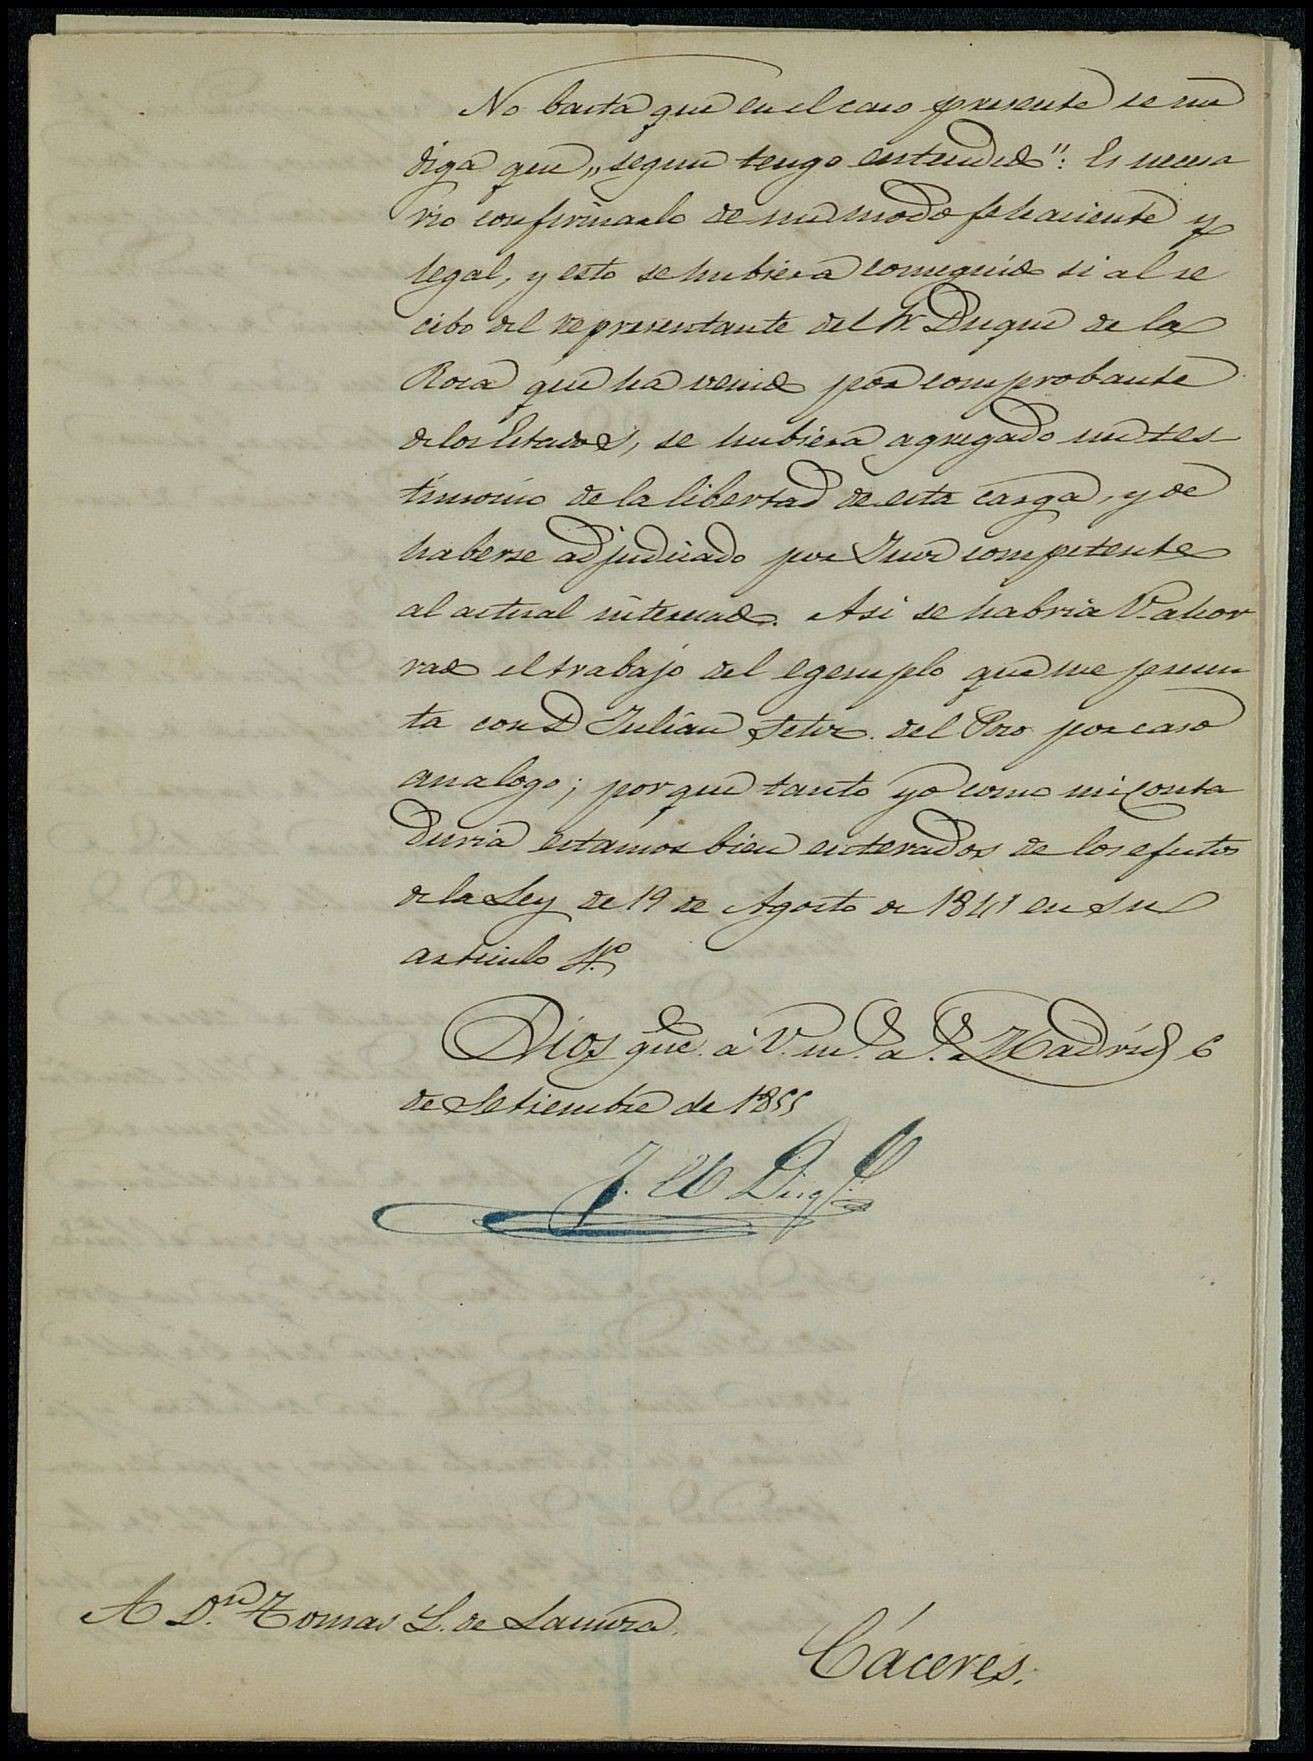 No basta que en el caso presente se me
diga que „segun tengo entendido": Es necesa
rio confirmarlo de un modo fehaciente y
legal, y esto se hubiera conseguido si al re
cibo del representante del Sr Duque de la
Roca que ha venido por comprobante
de los Estados, se hubiera agregado un tes-
timonio de la libertad de esta carga, y de
haberse adjudicado por Juez competente
al actual interesado. Asi se habria V. ahor
rado el trabajo del egemplo que me presen
ta con D Julian del Pozo por caso
analogo; porque tanto yo como mi Conta
duria estamos bien enterados de los efectos
de la Ley de 19 de Agosto de 1841 en su
articulo 4.º
Dios gue. á V. m.s a.s Madrid 6
de Setiembre de 1855
A D.n Tomas L. de
Cáceres.